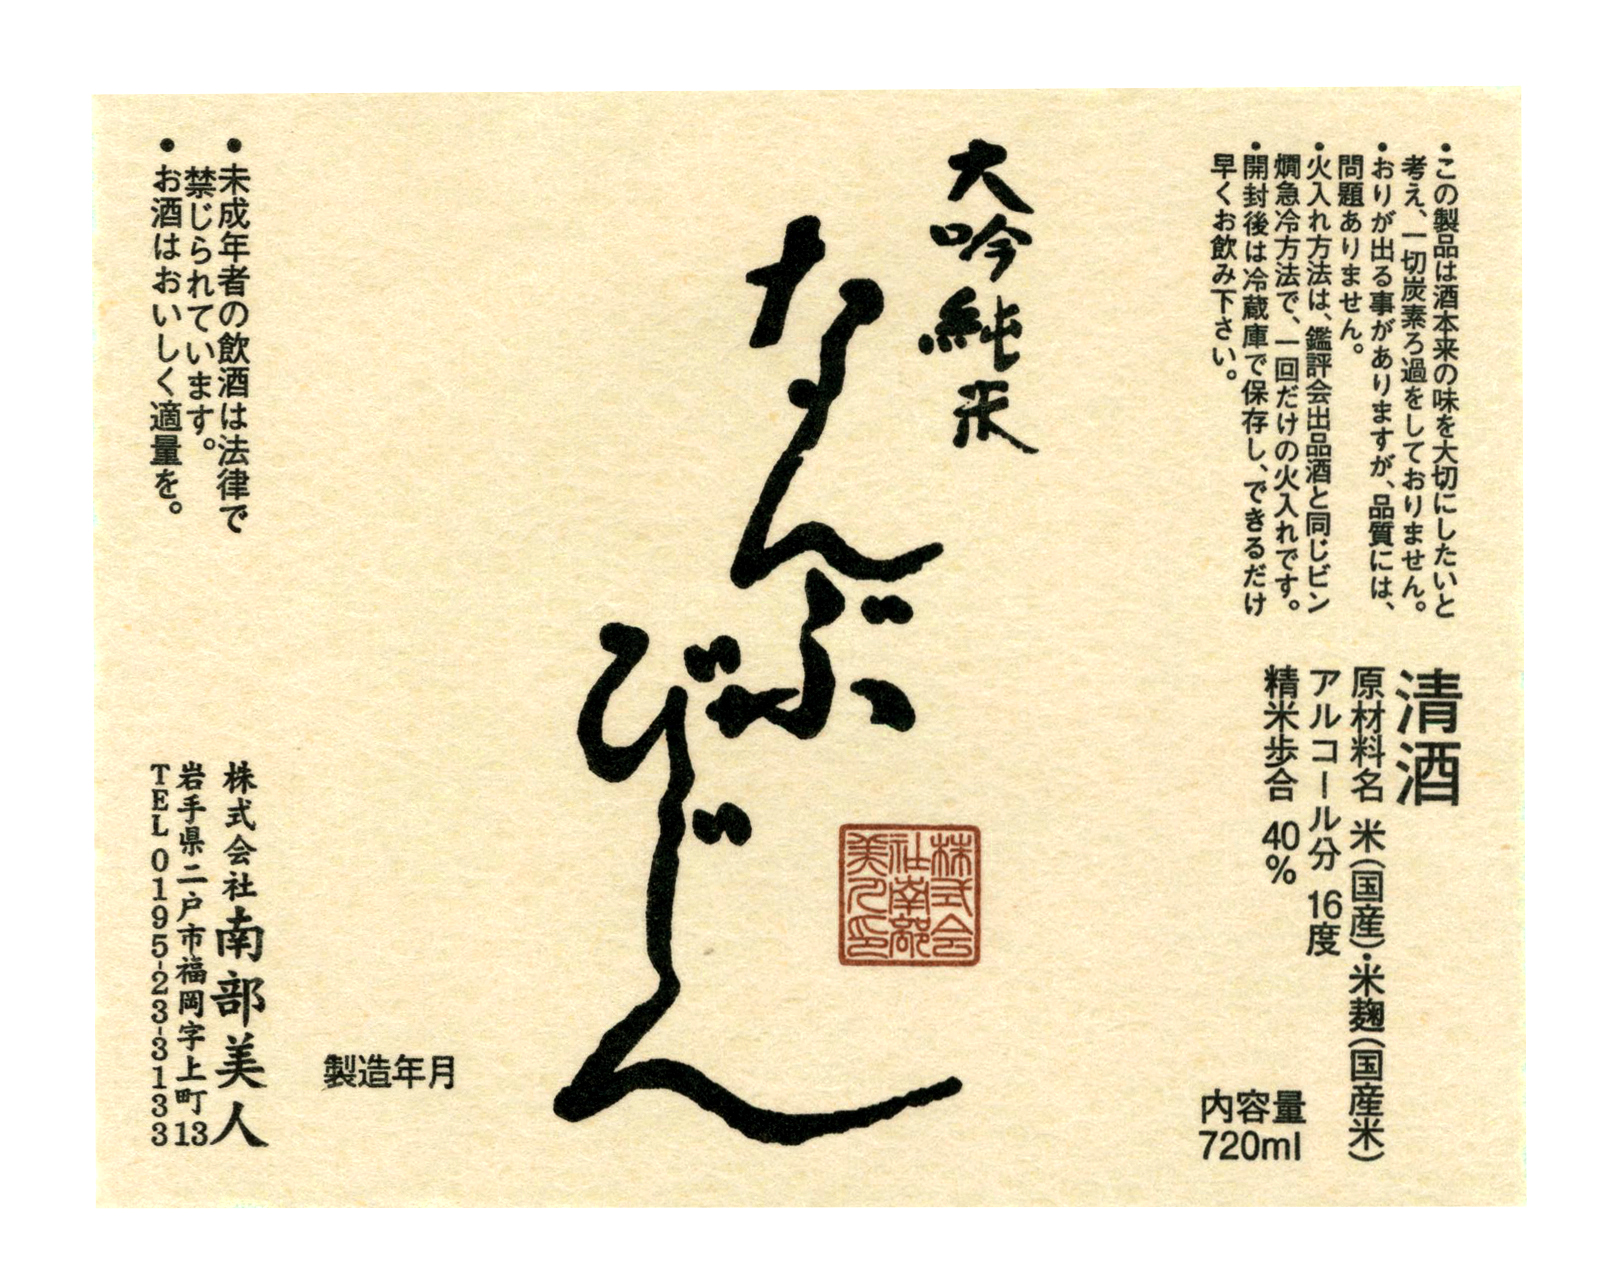 ・この製品は酒本来の味を大切にしたいと
考え、一切炭素ろ過をしておりません。
・おりが出る事がありますが、品質には、
問題ありません。
・火入れ方法は、鑑評会出品酒と同じビン
燗急冷方法で、一回だけの火入れです。
・開封後は冷蔵庫で保存し、できるだけ
早くお飲み下さい。
清酒
原材料名 米(国産)・米麹(国産米)
アルコール分 16度
精米歩合 40%
内容量
720ml
大吟純米
なんぶ
びじん
株式会
社南部
美人印
製造年月
・未成年者の飲酒は法律で
禁じられています。
・お酒はおいしく適量を。
株式会社南部美人
岩手県二戸市福岡字上町13
TEL 0195-23-3133